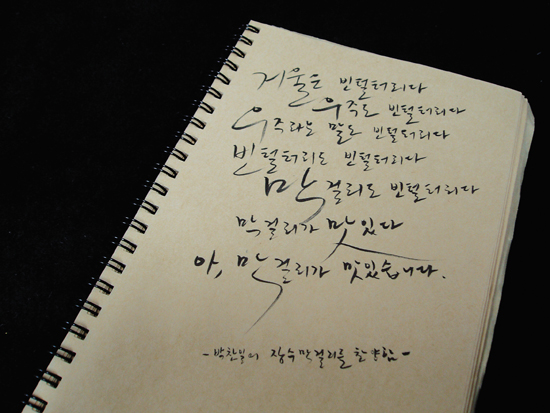 거울은 빈털터리다
우주도 빈털터리다
우주라는 말도 빈털터리다
빈털터리도 빈털터리다
막걸리도 빈털터리다
막걸리가 맛있다
아, 막걸리가 맛있습니다.
-박찬일의 장수막걸리를 찬양함-